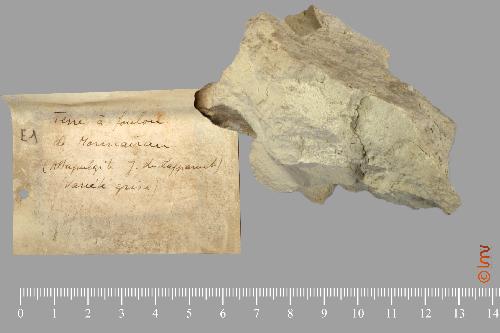 E1
Terre à foulon
de Mormoiron
(Attapulgite J. de Lapparent)
Variété grise)
© lmv
0 1 2 3 4 5 6 7 8 9 10 11 12 13 14